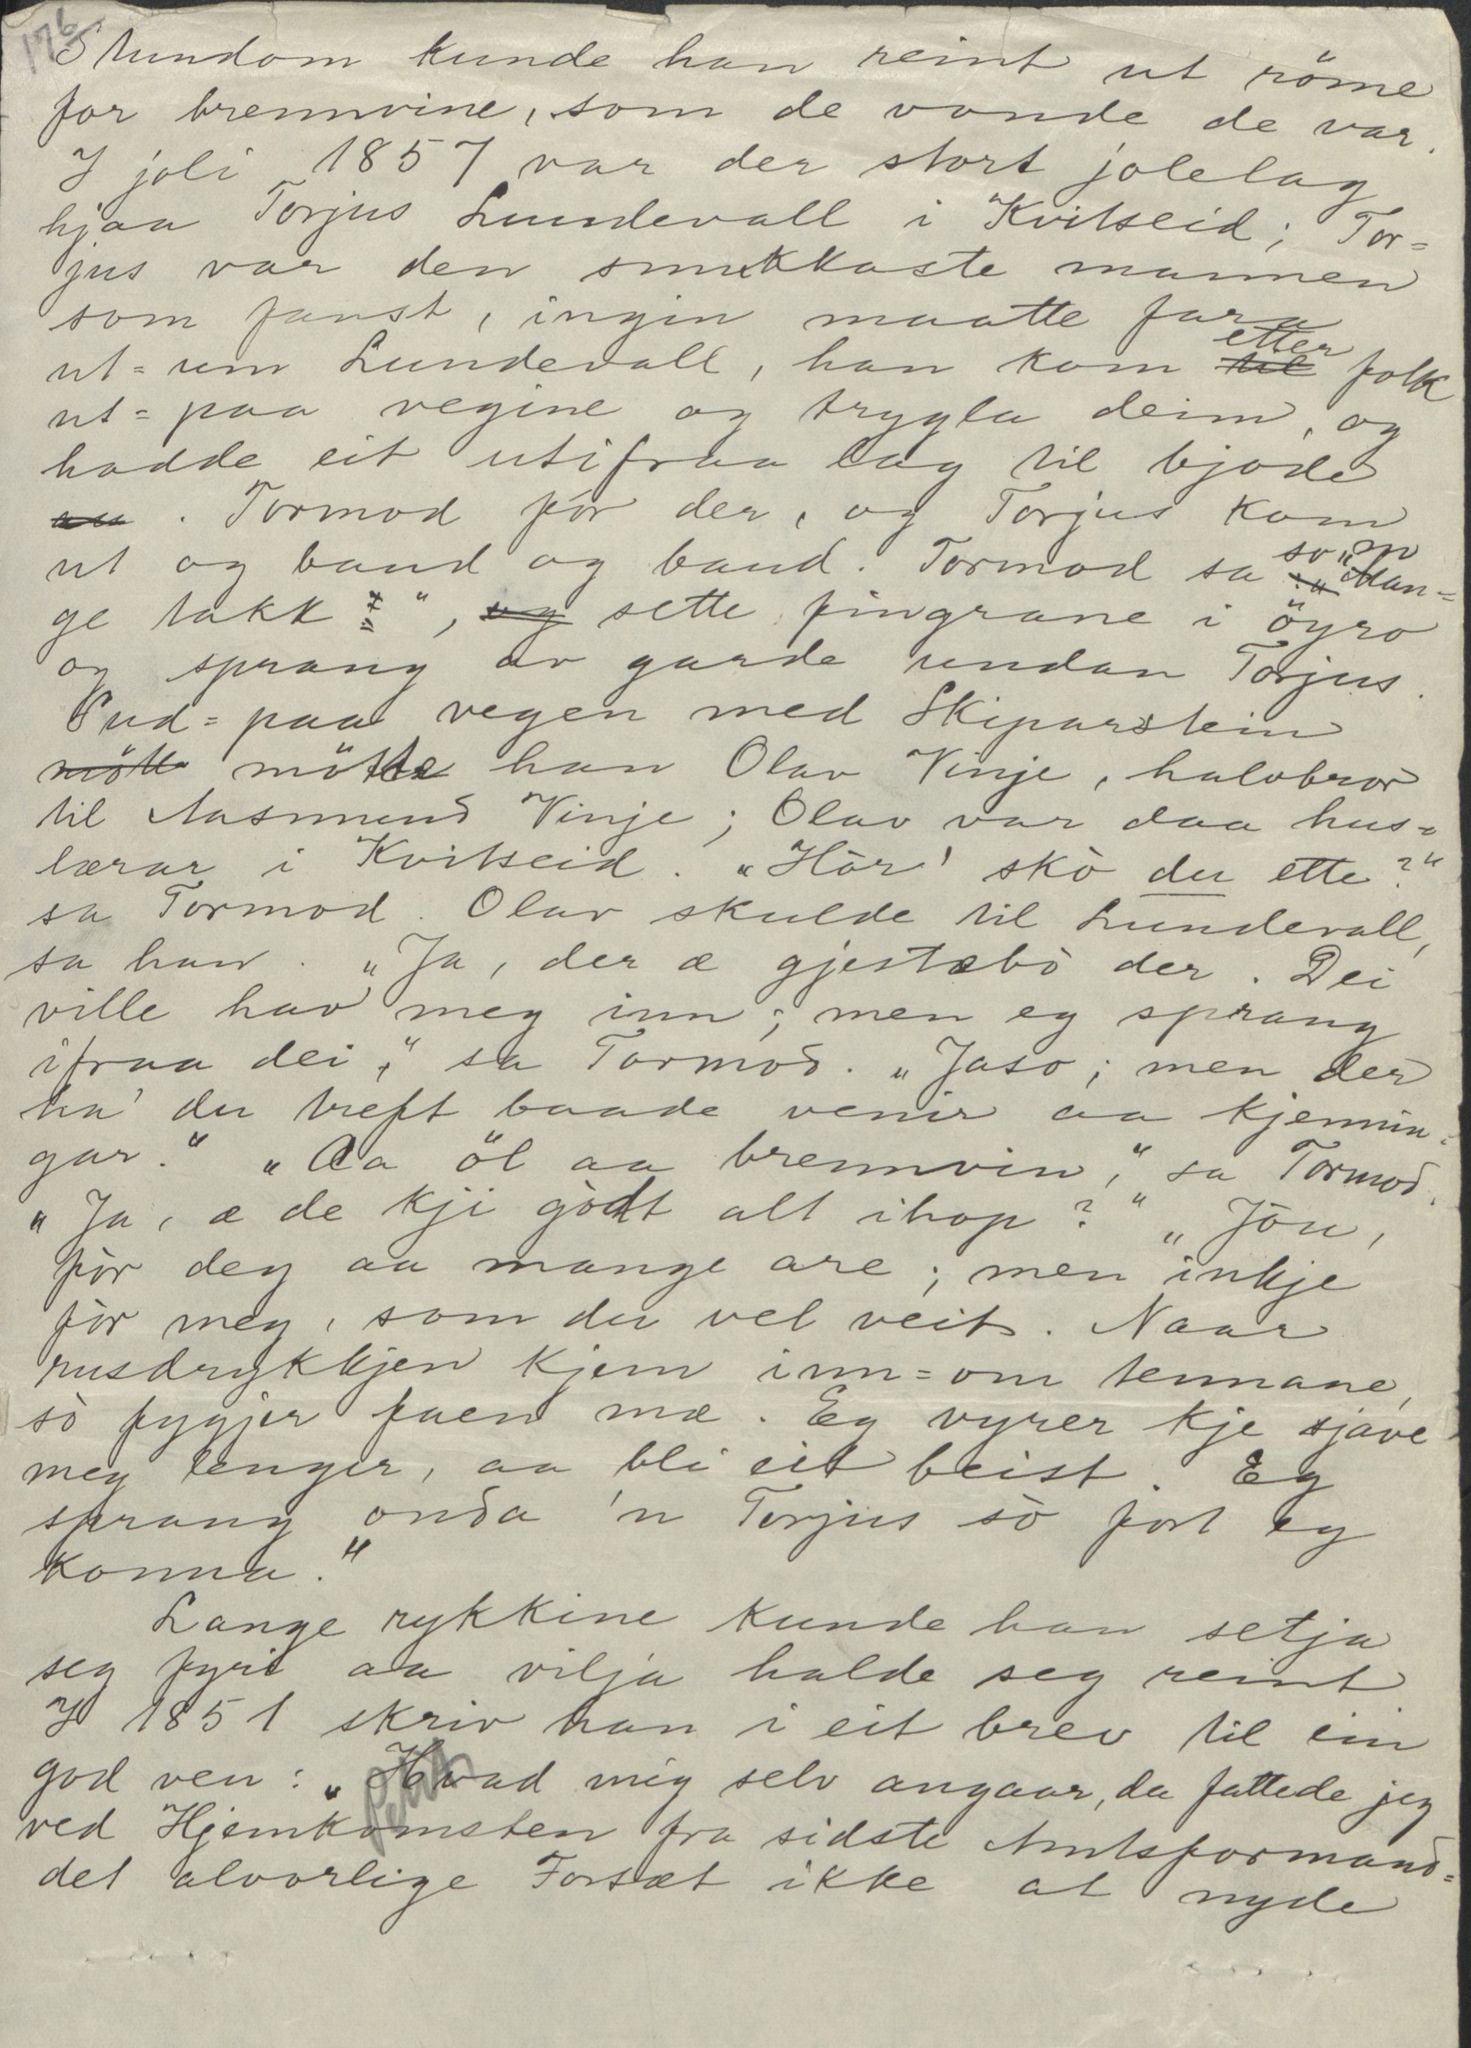 176
Stundom kunde han reint ut röme
for brennvine, som de vonde de var.
I joli 1857 var der stort jolelag
hjaa Torjus Lundevall i Kvitseid; Tor=
jus var den snukkaste mannen
som fanst, ingin maatte fara
ut=um Lundevall, han kom til etter folk
ut=paa vegine og trygla deim, og
hadde eit utifraa lag til bjode
au. Tormod fór der, og Torjus kom
ut og baud og baud. Tormod sa so „Man=
ge takk", og sette fingrane i öyro
og sprang av garde undan Torjus.
Sud=paa vegen med Skiparstein
mötte mötte han Olav Vinje, halvbror
til Aasmund Vinje; Olav var daa hus=
lærar i Kvitseid. „Hör' skò du ette?"
sa Tormod. Olav skulde til Lundevall,
sa han. „Ja, der æ gjestebò der. Dei
ville hav meg inn; men eg sprang
ifraa dei," sa Tormod. „Jaso; men der
ha' du treft baade venir aa kjennin=
gar." „Aa öl aa brennvin," sa Tormod.
„Ja, æ de kji gòdt alt ihop?" „Jöu,
fòr deg aa mange are; men inkje
fòr meg, som du vel veit. Naar
rusdrykkjen kjem inn=om tennane,
sò fygjer faen mæ. Eg vyrer kje sjave
meg lenger, aa bli eit beist. Eg
sprang onda 'n Torjus sò fort eg
konna."
Lange rykkine kunde han setja
seg fyri aa vilja halde seg reint.
I 1851 skriv han i eit brev til ein
god ven: „Hvad mig selv angaar, da fattede jeg
Petit
ved Hjemkomsten fra sidste Amtsformand=
det alvorlige Forsæt ikke at nyde